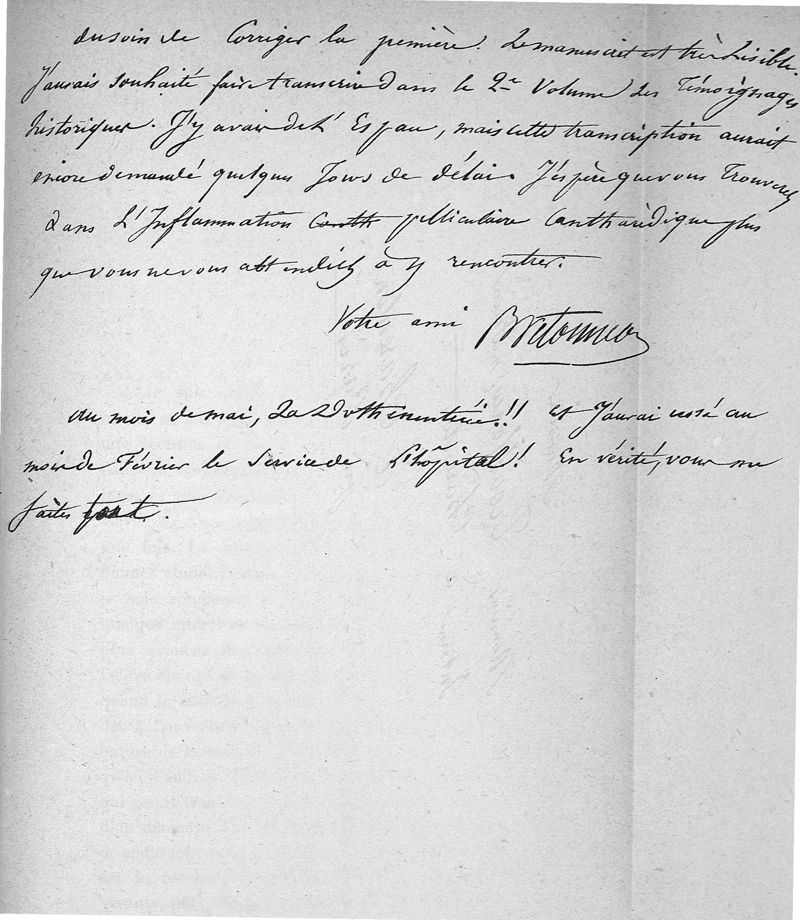 du soin de Corriger la première. Le manuscrit est très Lisible.
J'aurais souhaité faire transcrire dans le 2e Volume Les Témoignages
historiques. J'y avais de L'Espau, mais cette transcription aurait
encore demandé quelques Jours de délai. J'espère que vous Trouverez
dans L'Inflammation Canth pelliculaire Cantharidique plus
que vous ne vous attendiez à y rencontrer.
Votre ami Bretonneau
au mois de mai, La Dothinentérie!!! et J'aurai cessé au
mois de Février le Service de L'hôpital! En vérité, vous me
faites